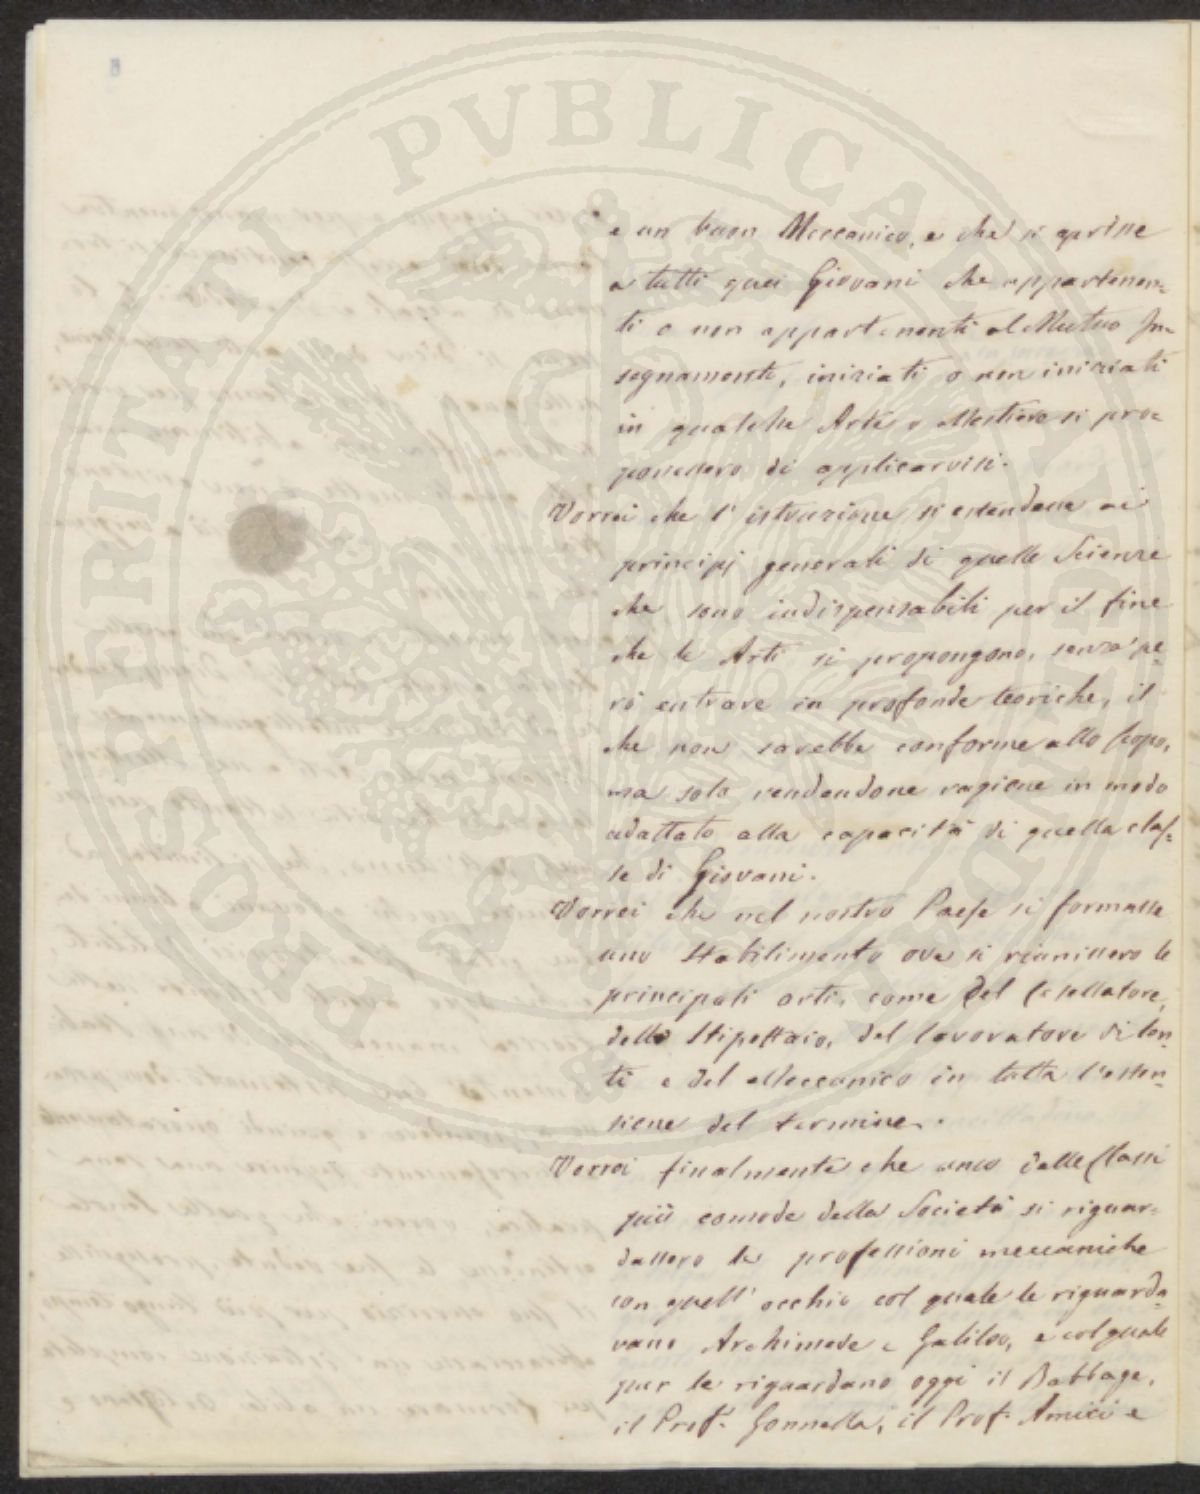 PROSPERITATI PVBLICAE AVGENDAE
e un buon Meccanico, e che si aprisse
a tutti quei Giovani che appartenen=
ti o non appartenenti al Mutuo In=
segnamento, iniziati o non iniziati
in qualche Arte o Mestiere si pro=
ponessero di applicarvisi.
Vorrei che l'istruzione si estendesse ai
principj generali di quelle Scienze
che sono indispensabili per il fine
che le Arti si propongono, senza pe=
rò entrare in profonde teoriche, il
che non sarebbe conforme allo scopo,
ma solo rendendone ragione in modo
adattato alla capacità di quella clas=
se di Giovani.
Vorrei che nel nostro Paese si formasse
uno Stabilimento ove si riunissero le
principali arti, come del Cesellatore,
dello Stipettaio, del lavoratore di len=
ti e del Meccanico in tutta l'esten=
sione del termine.
Vorrei finalmente che anco dalle Classi
più comode della Società si riguar=
dassero le professioni meccaniche
con quell'occhio col quale le riguarda=
vano Archimede e Galileo, e col quale
pur le riguardano oggi il Babbage,
il Prof. Gonnella, il Prof. Amici e